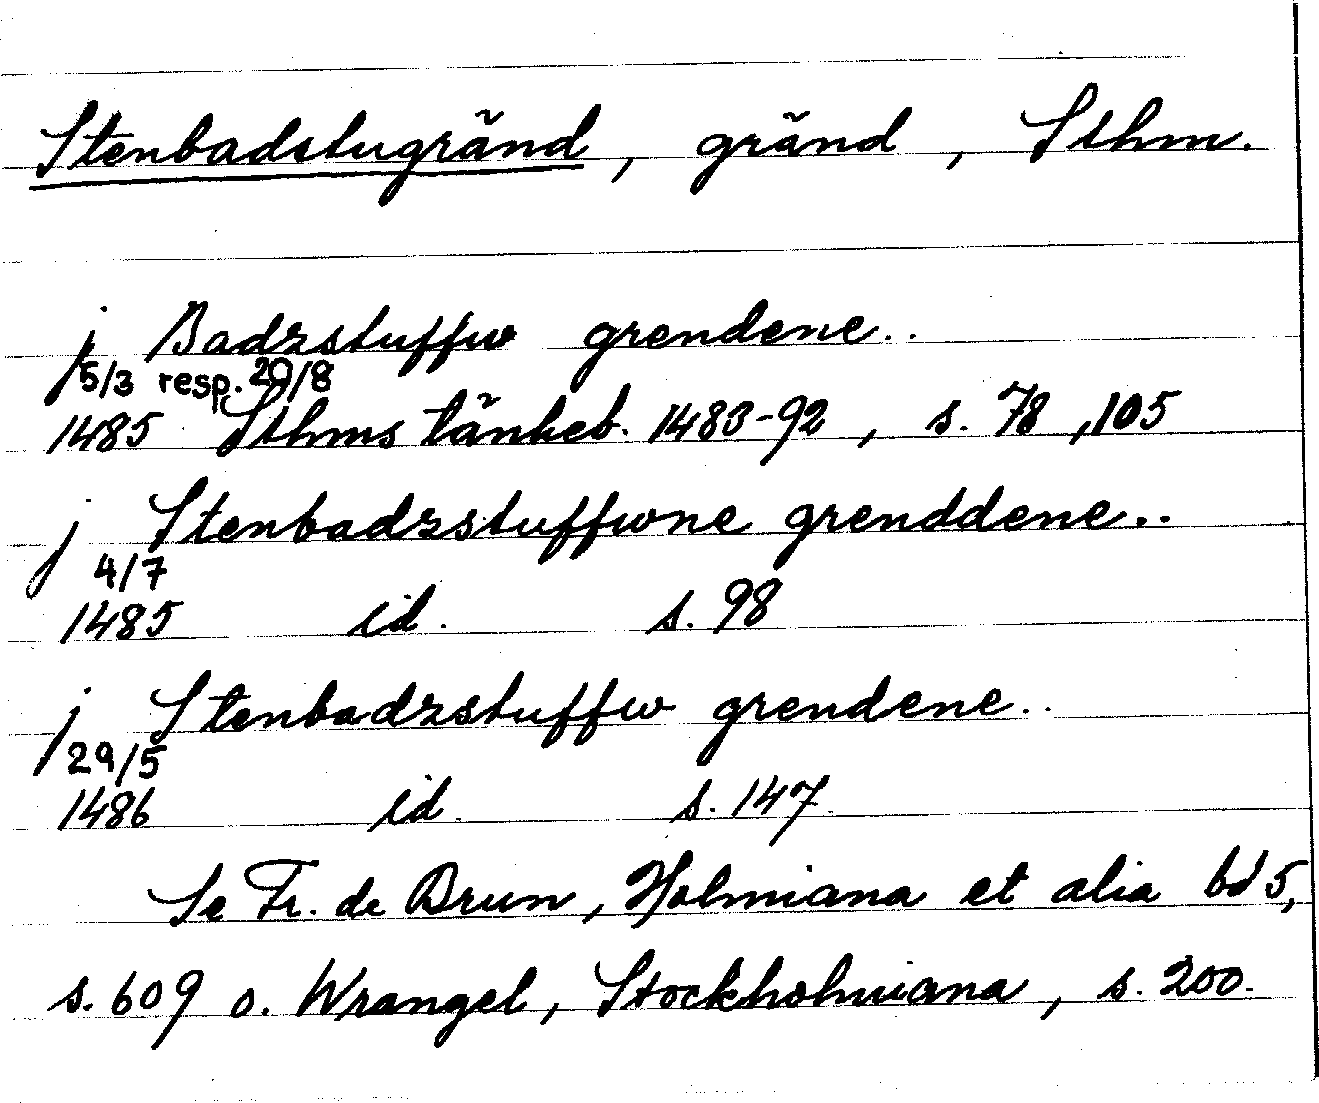 Stenbadstugränd, gränd, Sthm.
j Badzstuffw grendene..
5/3 resp. 29/8
1485 Sthms tänkeb. 1483-92, s. 78, 105
j Stenbadzstuffwne grenddene..
4/7
1485 id. s. 98
j Stenbadzstuffw grendene..
29/5
1486 id. s. 147.
Se Fr. de Brun, Holmiana et alia bd 5,
s. 609 o. Wrangel, Stockholmiana, s. 200.